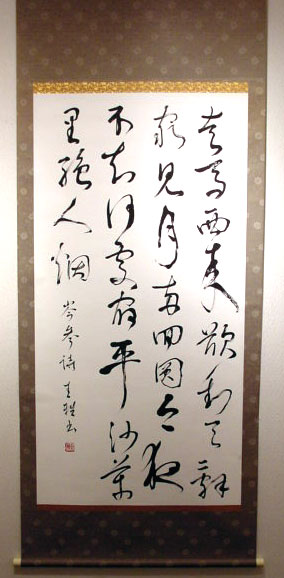 走馬西来欲到天辭
家見月兩回圓今夜
不知何處宿平沙萬
里絶人烟 岑參詩 書